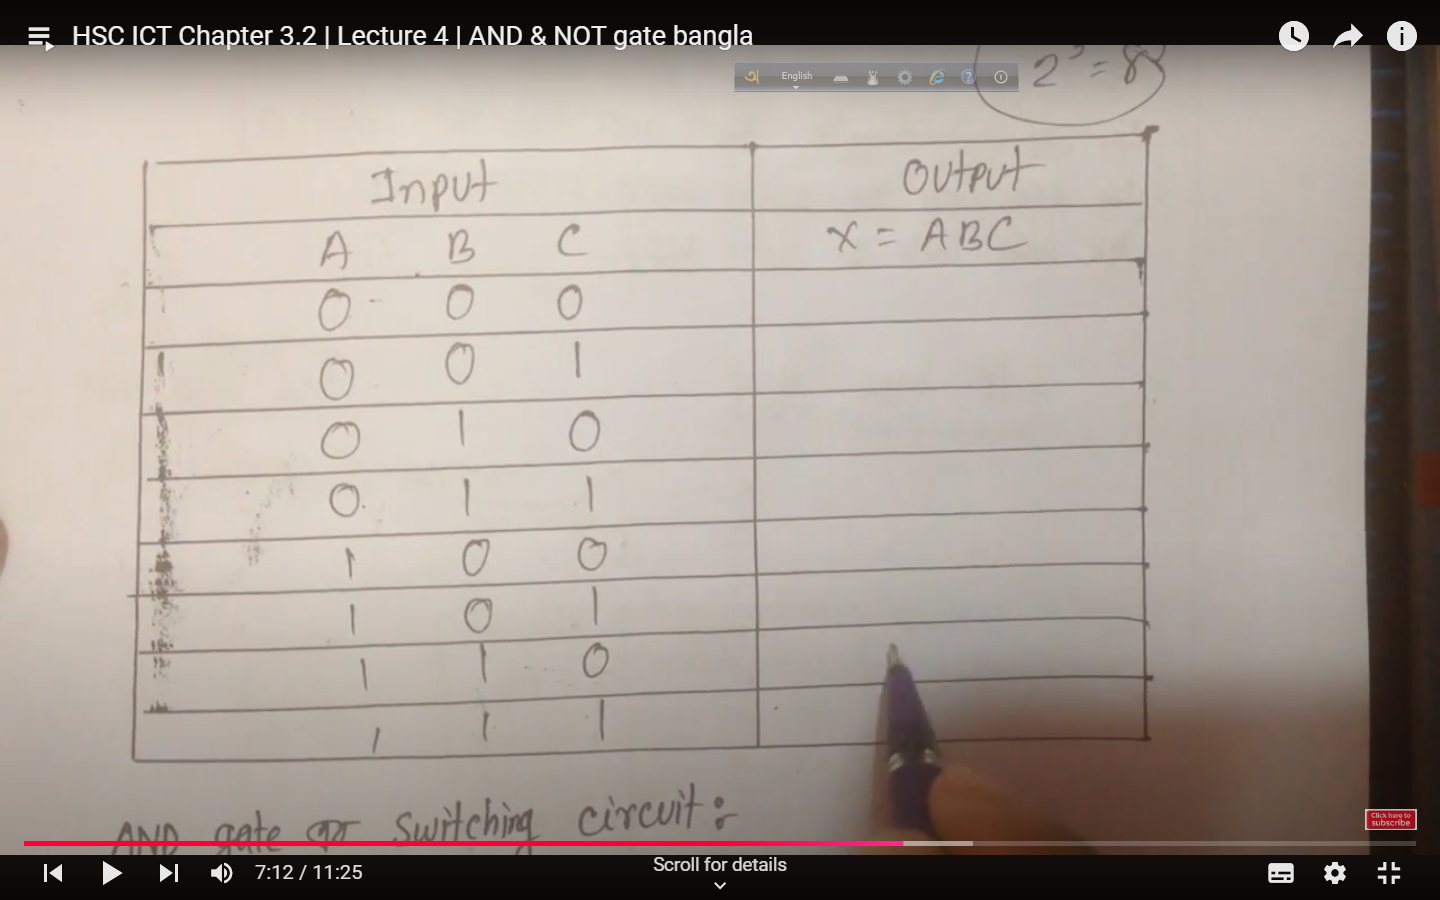 HSC ICT Chapter 3.2 | Lecture 4 | AND & NOT gate bangla
English
2³ = 8
Input Output
A B C X = ABC
0 0 0
0 0 1
0 1 0
0 1 1
1 0 0
1 0 1
1 1 0
1 1 1
AND gate এর switching circuit:
Click here to
subscribe
7:12 / 11:25
Scroll for details